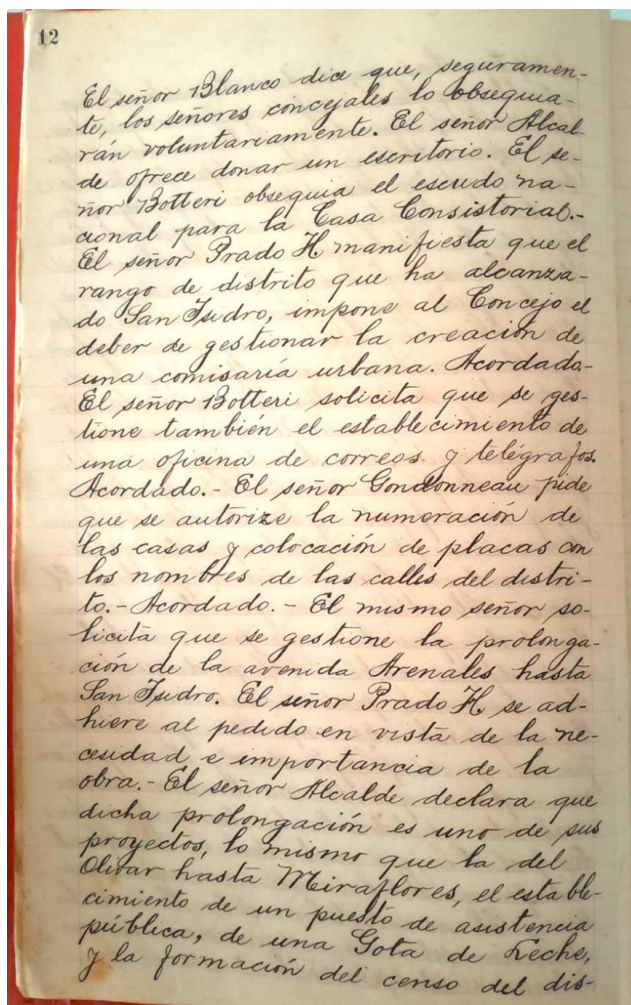 12
El señor Blanco dice que, seguramen-
te, los señores concejales lo obsequia-
rán voluntariamente. El señor Alcal-
de ofrece donar un escritorio. El se-
ñor Botteri obsequia el escudo na-
cional para la Casa Consistorial.-
El señor Prado H. manifiesta que el
rango de distrito que ha alcanza-
do San Isidro, impone al Concejo el
deber de gestionar la creación de
una comisaría urbana. Acordado.-
El señor Botteri solicita que se ges-
tione también el establecimiento de
una oficina de correos y telégrafos.
Acordado.- El señor Gondonneau pide
que se autorize la numeración de
las casas y colocación de placas con
los nombres de las calles del distri-
to.- Acordado.- El mismo señor so-
licita que se gestione la prolonga-
ción de la avenida Arenales hasta
San Isidro. El señor Prado H. se ad-
hiere al pedido en vista de la ne-
cesidad e importancia de la
obra.- El señor Alcalde declara que
dicha prolongación es uno de sus
proyectos, lo mismo que la del
Olivar hasta Miraflores, el estable-
cimiento de un puesto de asistencia
pública, de una Gota de Leche,
y la formación del censo del dis-